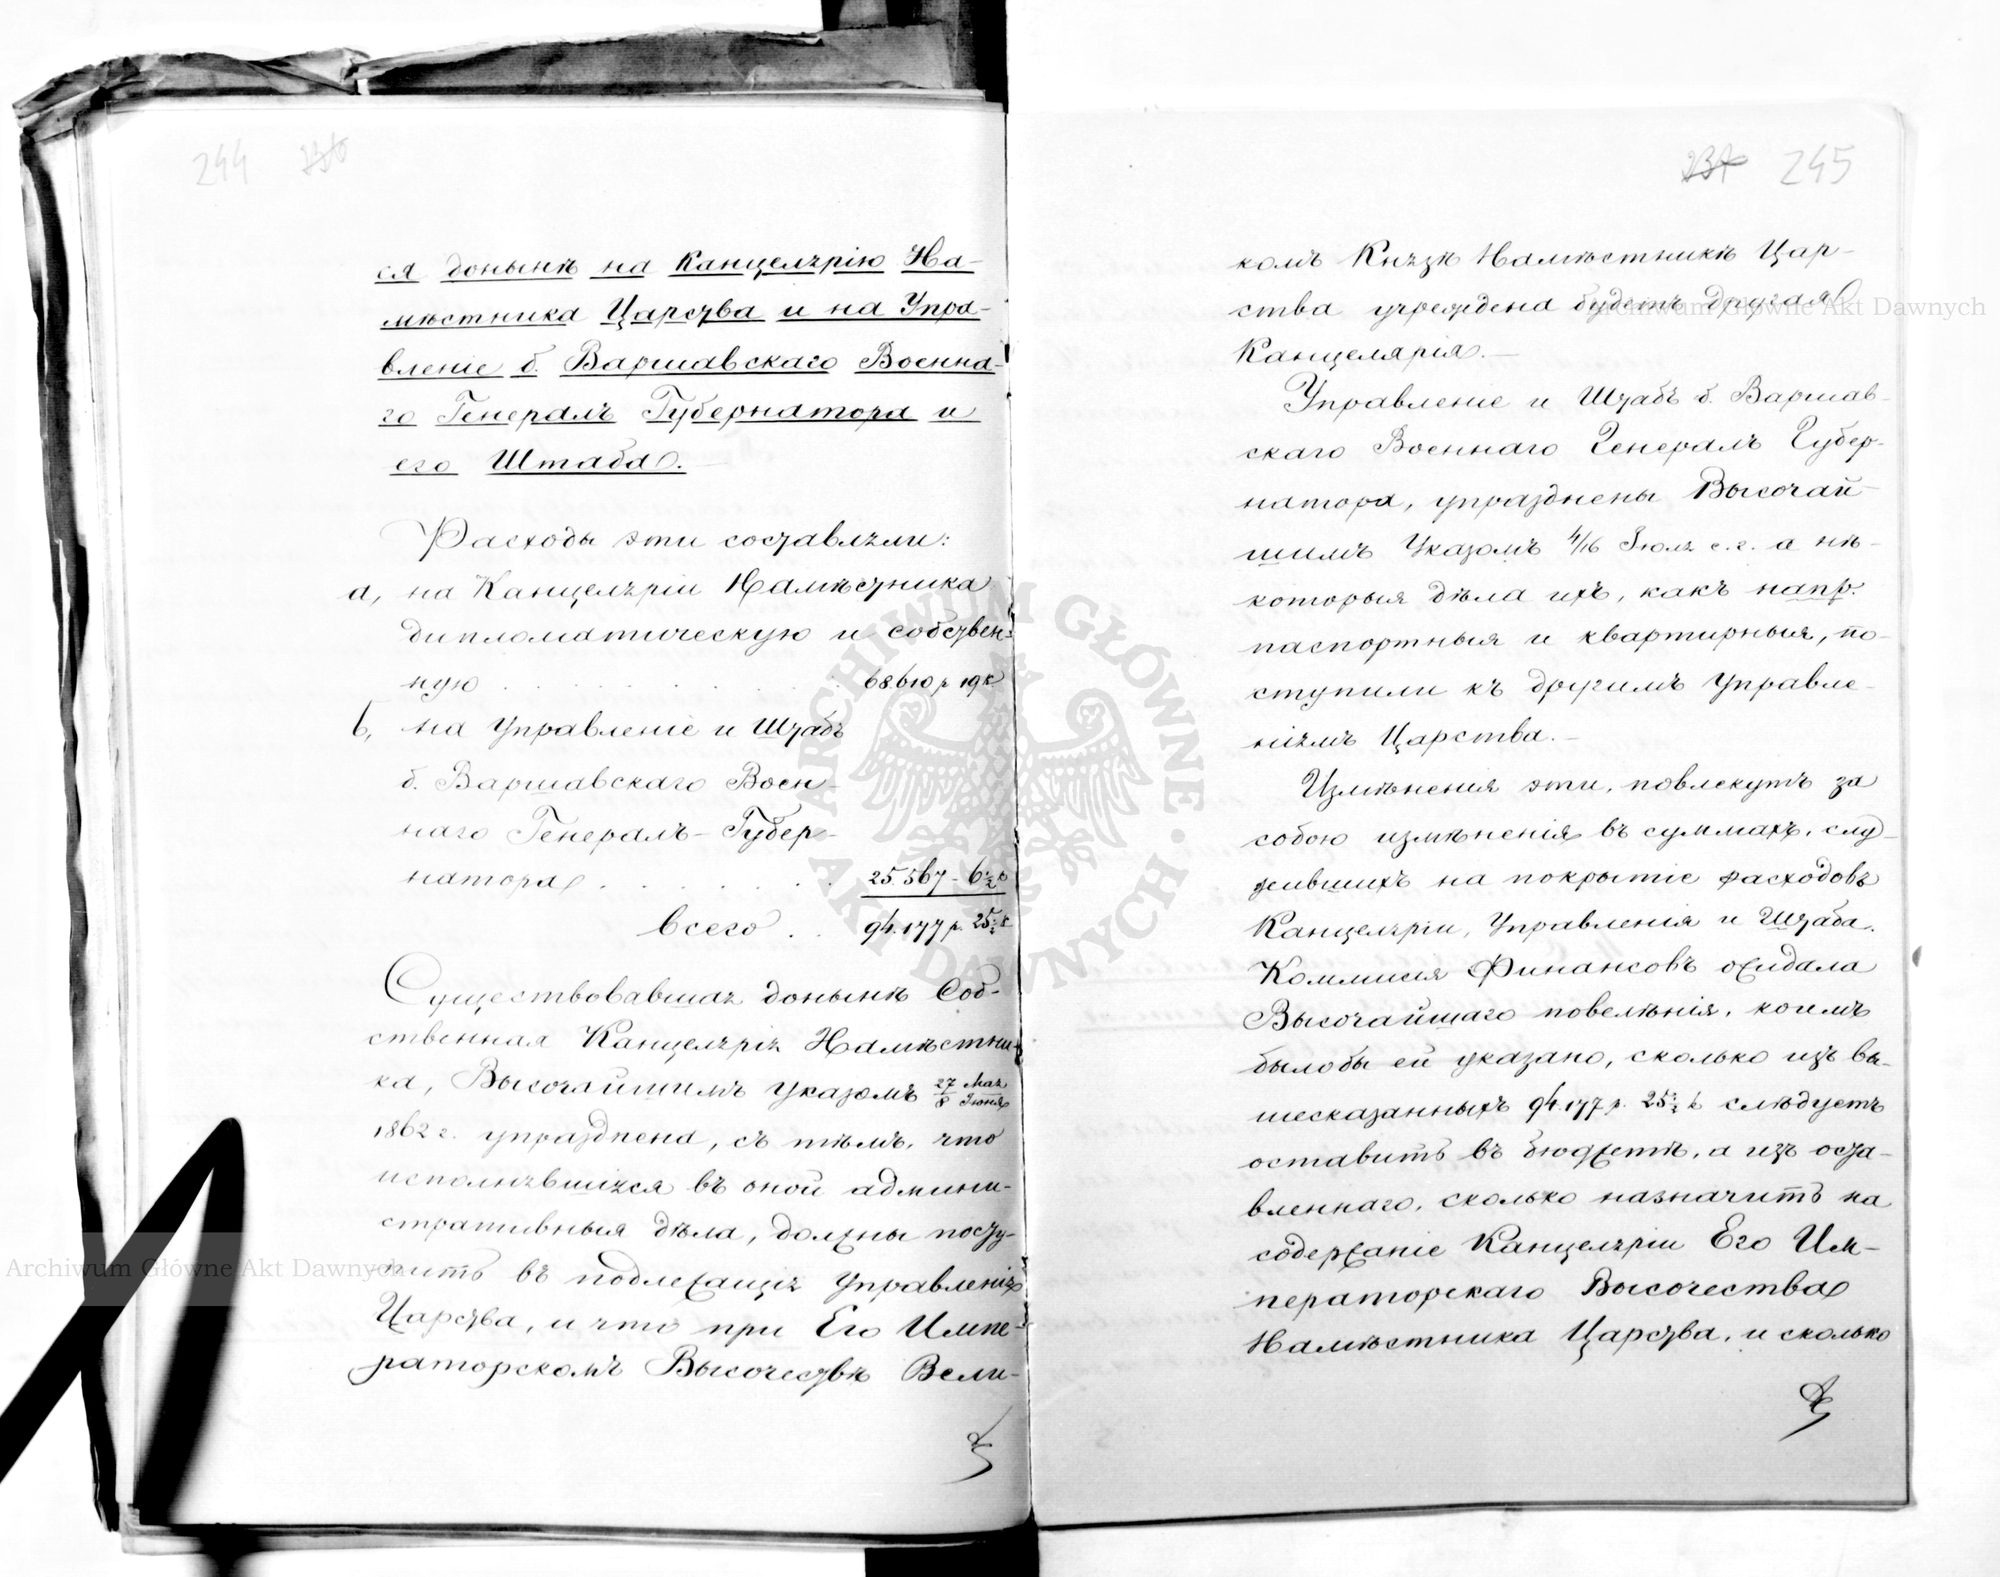 244
ся донынѣ на Канцелярію На-
мѣстника Царства и на Упра-
вленіе б. Варшавскаго Военна-
го Генералъ Губернатора и
его Штаба.
Расходы эти составляли:
а, на Канцеляріи Намѣстника
дипломатическую и собствен-
ную . . . . . . . 68.610 р 19 к
b, на Управленіе и Штабъ
б. Варшавскаго Воен-
наго Генералъ-Губер-
натора . . . . . . 25.567 - 6 ½ k
всего . . 94.177 р. 25 ½ к
Существовавшая донынѣ Соб-
ственная Канцелярія Намѣстни-
ка, Высочайшимъ Указомъ 27 Мая / 8 Іюня
1862 г. упразднена, съ тѣмъ, что
исполнявшіяся въ оной админи-
стративныя дѣла, должны посту-
пить въ подлежащія Управленія
Царства, и что при Его Импе-
раторскомъ Высочествѣ Вели-
245
комъ Князѣ Намѣстникѣ Цар-
ства учреждена будетъ другая
Канцелярія.—
Управленіе и Штабъ б. Варшав-
скаго Военнаго Генералъ Губер-
натора, упразднены Высочай-
шимъ Указомъ 4/16 Іюля с. г. а нѣ-
которыя дѣла ихъ, какъ напр.
паспортныя и квартирныя, по-
ступили къ другимъ Управле-
ніямъ Царства.—
Измѣненія эти, повлекутъ за
собою измѣненія въ суммахъ, слу-
жившихъ на покрытіе расходовъ
Канцеляріи, Управленія и Штаба.
Коммисія Финансовъ ожидала
Высочайшаго повелѣнія, коимъ
былобы ей указано, сколько изъ вы-
шесказанныхъ 94.177 р. 25 ½ k слѣдуетъ
оставить въ бюджетѣ, а изъ оста-
вленнаго, сколько назначить на
содержаніе Канцеляріи Его Им-
ператорскаго Высочества
Намѣстника Царства, и сколько
Archiwum Główne Akt Dawnych
Archiwum Główne Akt Dawnych
ARCHIWUM GŁÓWNE AKT DAWNYCH